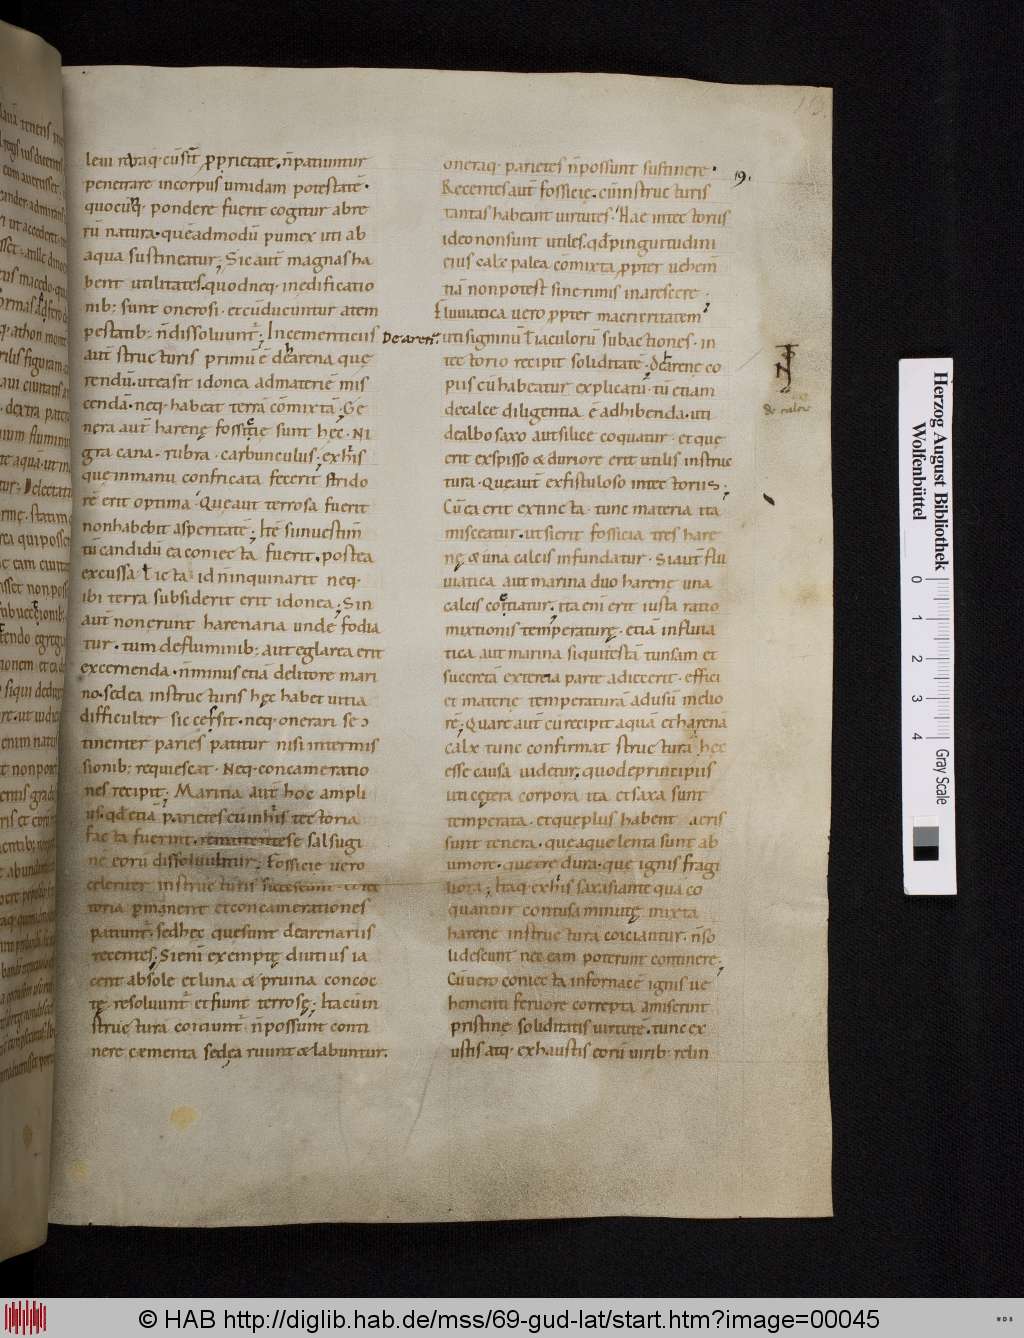 leui raraq; cu sit ꝓprietate. n̄ patiuntur
penetrare incorpus umidam potestatē.
quocūq; pondere fuerit cogitur abre
rū natura. quēadmodū pumex uti ab
aqua sustineatur; Sic aut̄ magnas ha
bent utilitates. quod neq; inedificatio
nib; sunt onerosi. et cū ducuntur atem
pestatib; n̄ dissoluunt̄; Incementicus
aut̄ structuris primū ē de harena que
rendū. ut ea sit idonea admateriē mis
cendā. neq; habeat terrā cōmixtā; Ge
nera aut̄ harenę fossicię sunt hęc. Ni
gra cana. rubra. carbunculus; ex his
que inmanu confricata fecerit strido
rē erit optima. Que aut̄ terrosa fuerit
non habebit asperitatē; Itē si inuestim̄
tū candidū ea coniecta fuerit. postea
excussa ł icta id n̄ inquinarit neq;
ibi terra subsiderit erit idonea; Sin
aut̄ non erunt harenaria unde fodia
tur. tum defluminib; aut eglarea erit
excernenda. n̄ minus etiā delitore mari
no. sed ea instructuris hęc habet uitia
difficulter siccescit. neq; onerari se ↄ
tinenter paries patitur nisi intermis
sionib; requiescat. Neq; concameratio
nes recipit; Marina aut̄ hoc ampli
us. qđ etiā parietes cum his tectoria
facta fuerint. remittente se salsugi
nē eorū dissoluuntur; Fossicie uero
celeriter instructuris siccescunt et tec
toria ꝑmanent et concamerationes
patiunt̄. sed hęc quę sunt dearenariis
recentes; Si enī exemptę diutius ia
cent absole et luna & pruina concoc
tę resoluunt̄ et fiunt terrosę; Ita cū in
structura coiciunt̄. n̄ possunt conti
nere cęmenta sed ea ruunt & labuntur.
De aren̄.
oneraq; parietes n̄ possunt sustinere.
Recentes aut̄ fossicię. cū instructuris
tantas habeant uirtutes. Hae intectoriis
ideo non sunt utiles. qđ pinguitudini
eius calx palea cōmixta ꝓpter uehem̄
tiā non potest sine rimis inarescere;
Fluuiatica uero ꝓpter macrieritatem
uti signinū ł iaculorū subactiones. in
tectorio recipit soliditatē. De arenę co
piis cū habeatur explicatū. tū etiam
decalce diligentia ē adhibenda. uti
dealbo saxo aut silice coquatur. et que
erit exspisso & duriore erit utilis instruc
tura. Que aut̄ exfistuloso intectoriis;
Cū ea erit extincta. tunc materia ita
misceatur. ut si erit fossicia tres hare
nę & una calcis infundatur. Si aut̄ flu
uiatica aut marina duo harenę una
calcis coiciatur. ita enī erit iusta ratio
mixtionis temperaturę. etiā influuia
tica aut marina si quis testā tunsam et
succretā ex tercia parte adiecerit. effici
et materię temperaturā adusū melio
rē; Quare aut̄ cū recipit aquā et harenā
calx tunc confirmat structurā hęc
esse causa uidetur. quod e principiis
uti cętera corpora ita et saxa sunt
temperata. et que plus habent aeris
sunt tenera. que aque lenta sunt ab
umore. que tre dura. que ignis fragi
liora; Itaq; ex his saxa si ante qua co
quantur contusa minutę mixta
harenę instructura coiciantur. n̄ so
lidescunt nec eam poterunt continere;
Cū uero coniecta infornacē ignis ue
hementi feruore correpta amiserint
pristinę soliditatis uirtutē. tunc ex
ustis atq; exhaustis eorū uirib; relin
Herzog August Bibliothek
Wolfenbüttel
0 1 2 3 4
Gray Scale
© HAB http://diglib.hab.de/mss/69-gud-lat/start.htm?image=00045